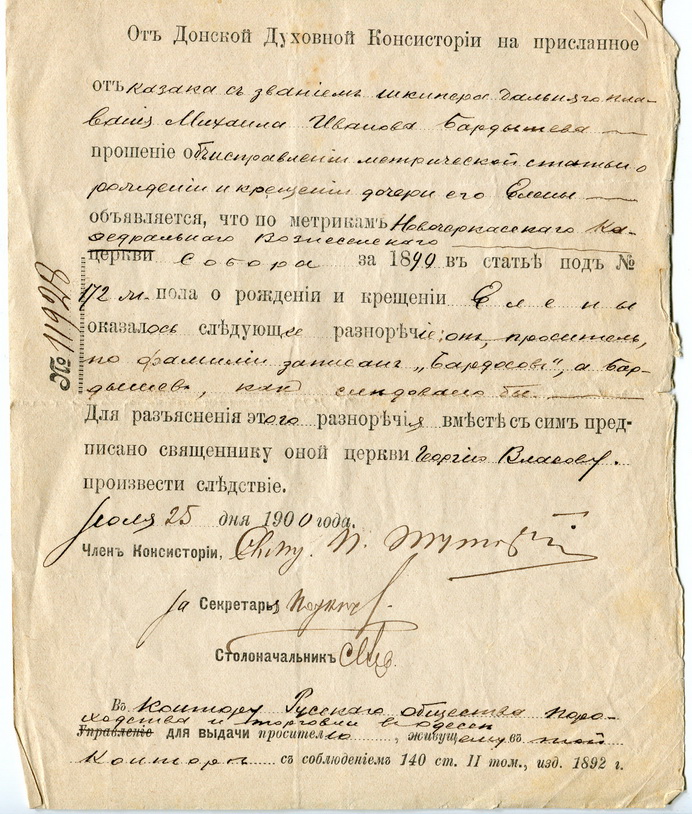 Отъ Донской Духовной Консисторіи на присланное
отъ казака съ званіемъ шкипера дальняго пла-
ванія Михаила Иванова Бардышева
прошеніе объ исправленіи метрической статьи о
рожденіи и крещеніи дочери его Елены
объявляется, что по метрикамъ Новочеркасскаго Ка-
ѳедральнаго Вознесенскаго
церкви Собора за 1890 въ статьѣ подъ №
172 ж. пола о рожденіи и крещеніи Елены
№ 11928
оказалось слѣдующее разнорѣчіе: онъ, проситель,
по фамиліи записанъ „Бардосовъ", а Бар-
дышевъ, какъ слѣдовало бы.
Для разъясненія этого разнорѣчія вмѣстѣ съ симъ пред-
писано священнику оной церкви Георгію Власову.
произвести слѣдствіе.
Іюля 25 дня 1900 года.
Членъ Консисторіи,
За Секретарь
Столоначальникъ
Въ Контору Русскаго общества паро-
ходства и торговли въ Одессѣ
Управленіе для выдачи просителю, живущему въ той
Конторѣ съ соблюденіемъ 140 ст. II том., изд. 1892 г.